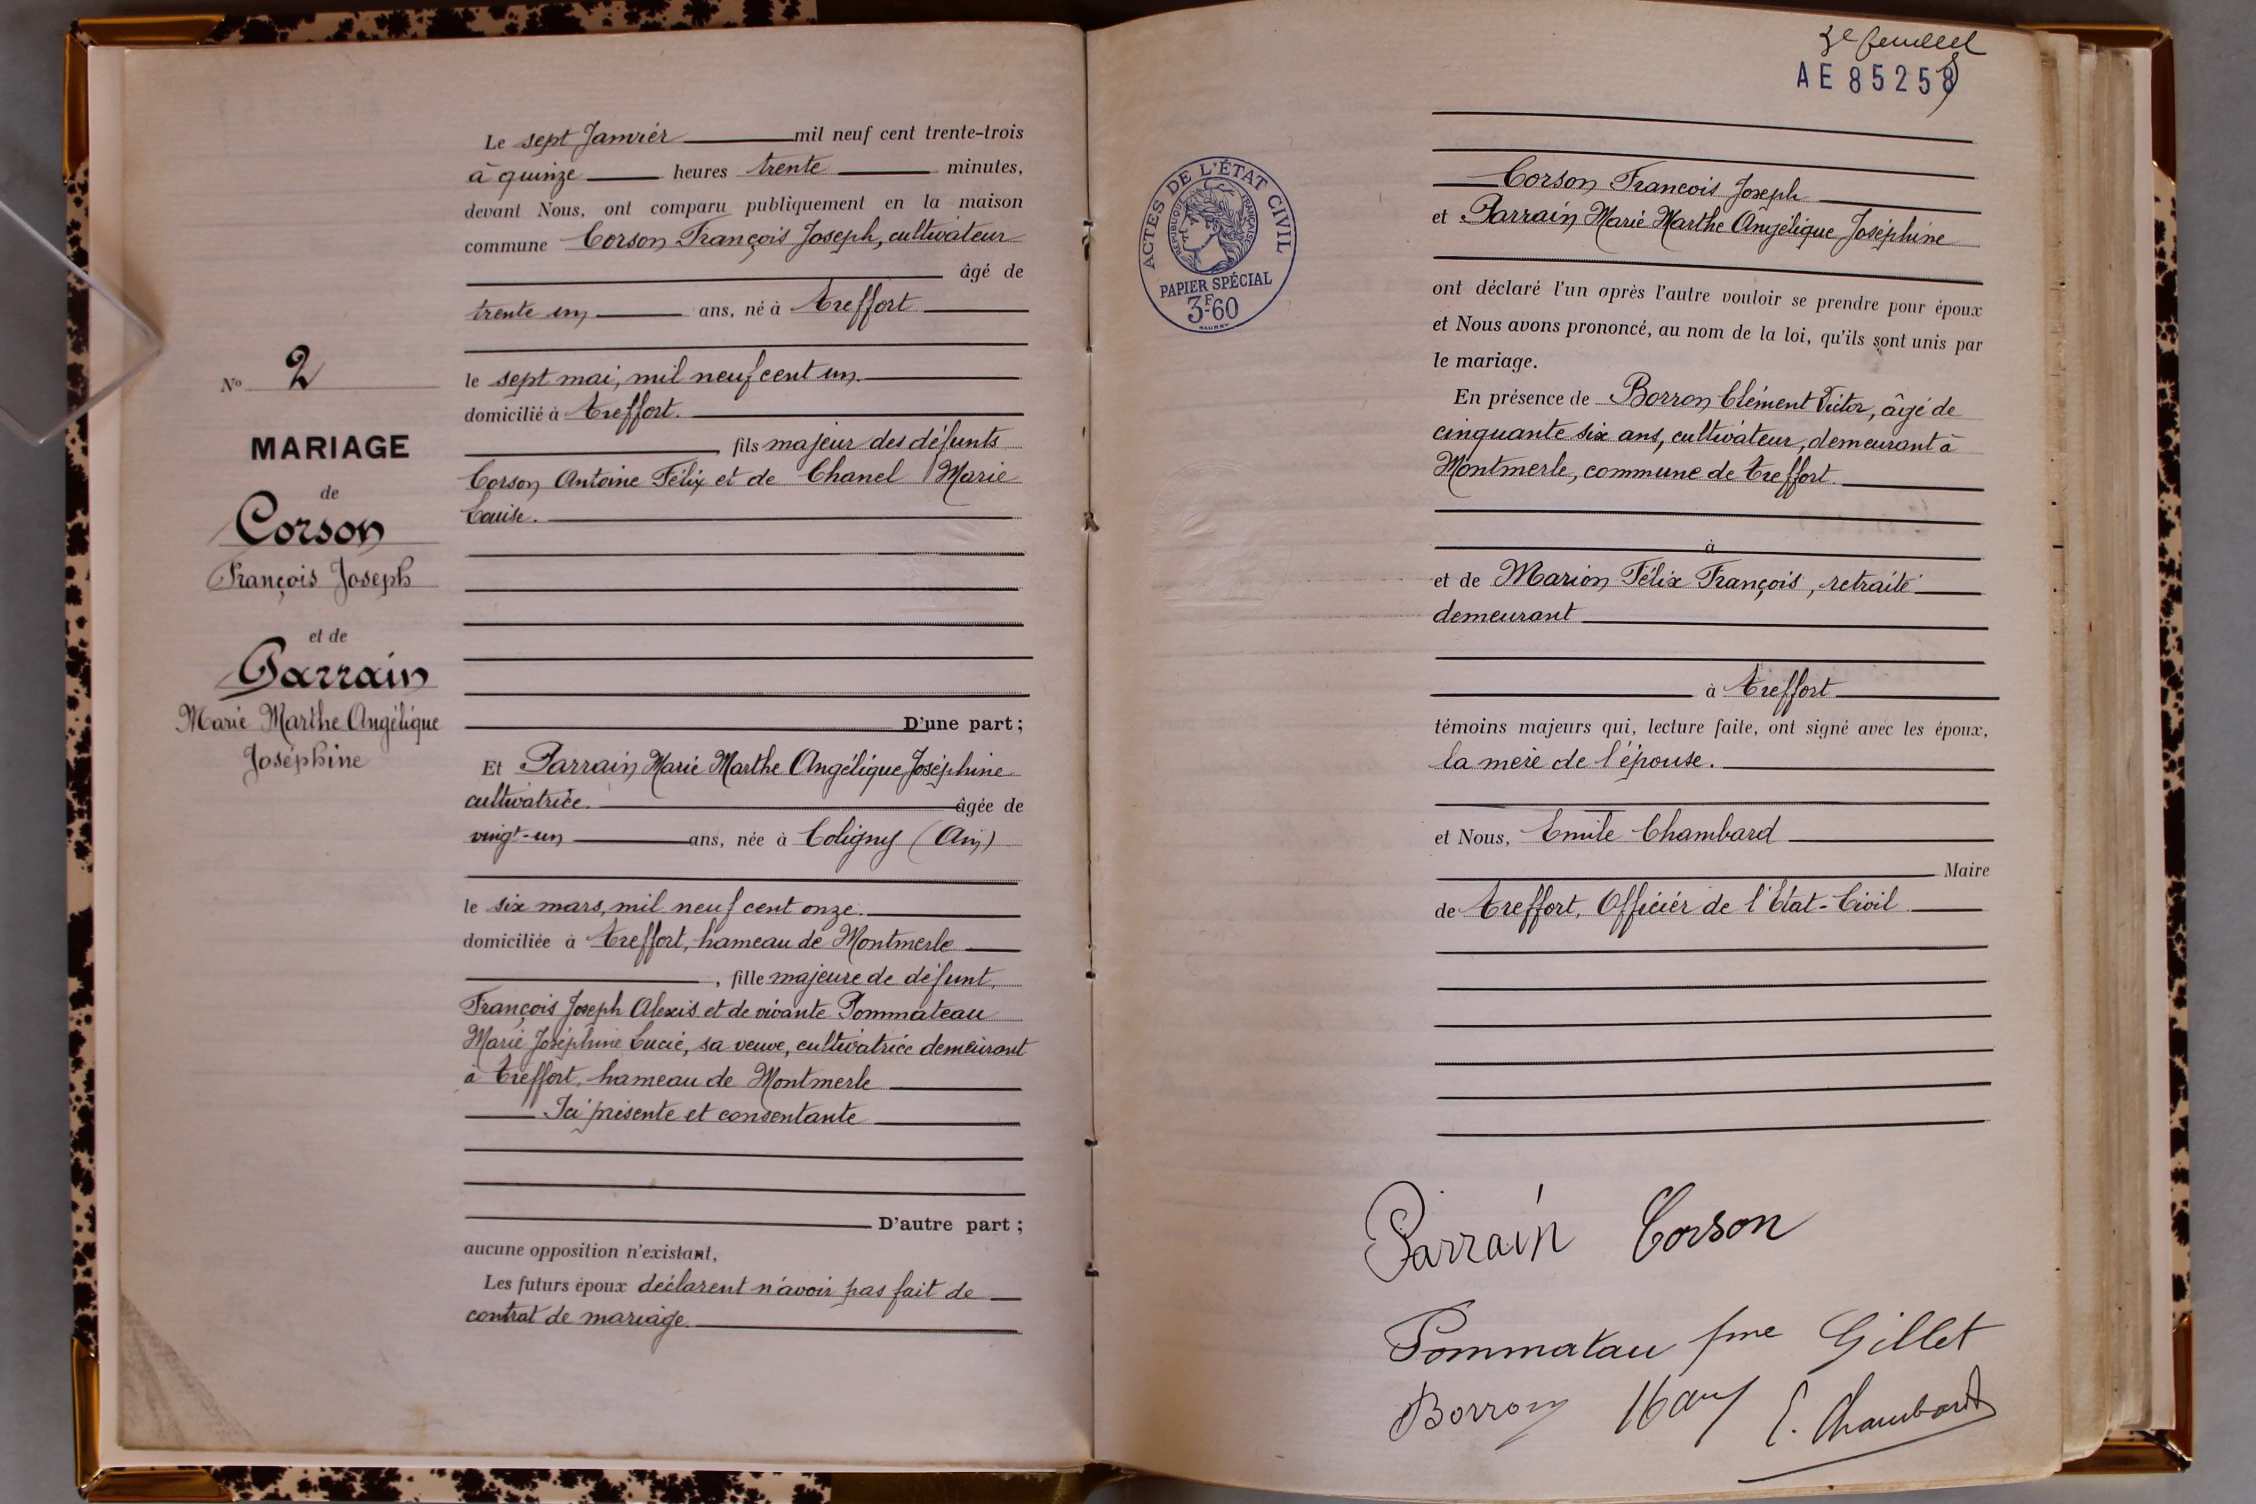 Nº 2
MARIAGE
de
Corson
François Joseph
et de
Parrain
Marie Marthe Angélique
Joséphine
Le sept Janvier mil neuf cent trente-trois
à quinze heures trente minutes,
devant Nous, ont comparu publiquement en la maison
commune Corson François Joseph, cultivateur
âgé de
trente un ans, né à Treffort
le sept mai, mil neuf cent un.
domicilié à Treffort.
, fils majeur des défunts
Corson Antoine Félix et de Chanel Marie
Louise.
D'une part ;
Et Parrain Marie Marthe Angélique Joséphine
cultivatrice. âgée de
vingt-un ans, née à Coligny (Ain)
le six mars, mil neuf cent onze.
domiciliée à Treffort, hameau de Montmerle
, fille majeure de défunt,
François Joseph Alexis et de vivante Pommateau
Marie Joséphine Lucie, sa veuve, cultivatrice demeurant
à Treffort, hameau de Montmerle
Ici présente et consentante
D'autre part ;
aucune opposition n'existant,
Les futurs époux déclarent n'avoir pas fait de
contrat de mariage.
3e feuillet
AE 85258
ACTES DE L'ÉTAT CIVIL
RÉPUBLIQUE FRANÇAISE
PAPIER SPÉCIAL
3F.60
Corson Francois Joseph
et Parrain Marie Marthe Angélique Joséphine
ont déclaré l'un après l'autre vouloir se prendre pour époux
et Nous avons prononcé, au nom de la loi, qu'ils sont unis par
le mariage.
En présence de Borron Clément Victor, âgé de
cinquante six ans, cultivateur, demeurant à
Montmerle, commune de Treffort.
à
et de Marion Félix François, retraité
demeurant
à Treffort
témoins majeurs qui, lecture faite, ont signé avec les époux,
la mère de l'épouse.
et Nous, Emile Chambard
Maire
de Treffort, Officier de l'Etat-Civil
Parrain Corson
Pommatau fme Gillet
Borron
E. Chambard